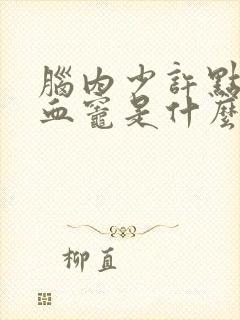 腦內少許點
血竈是什麼
柳直